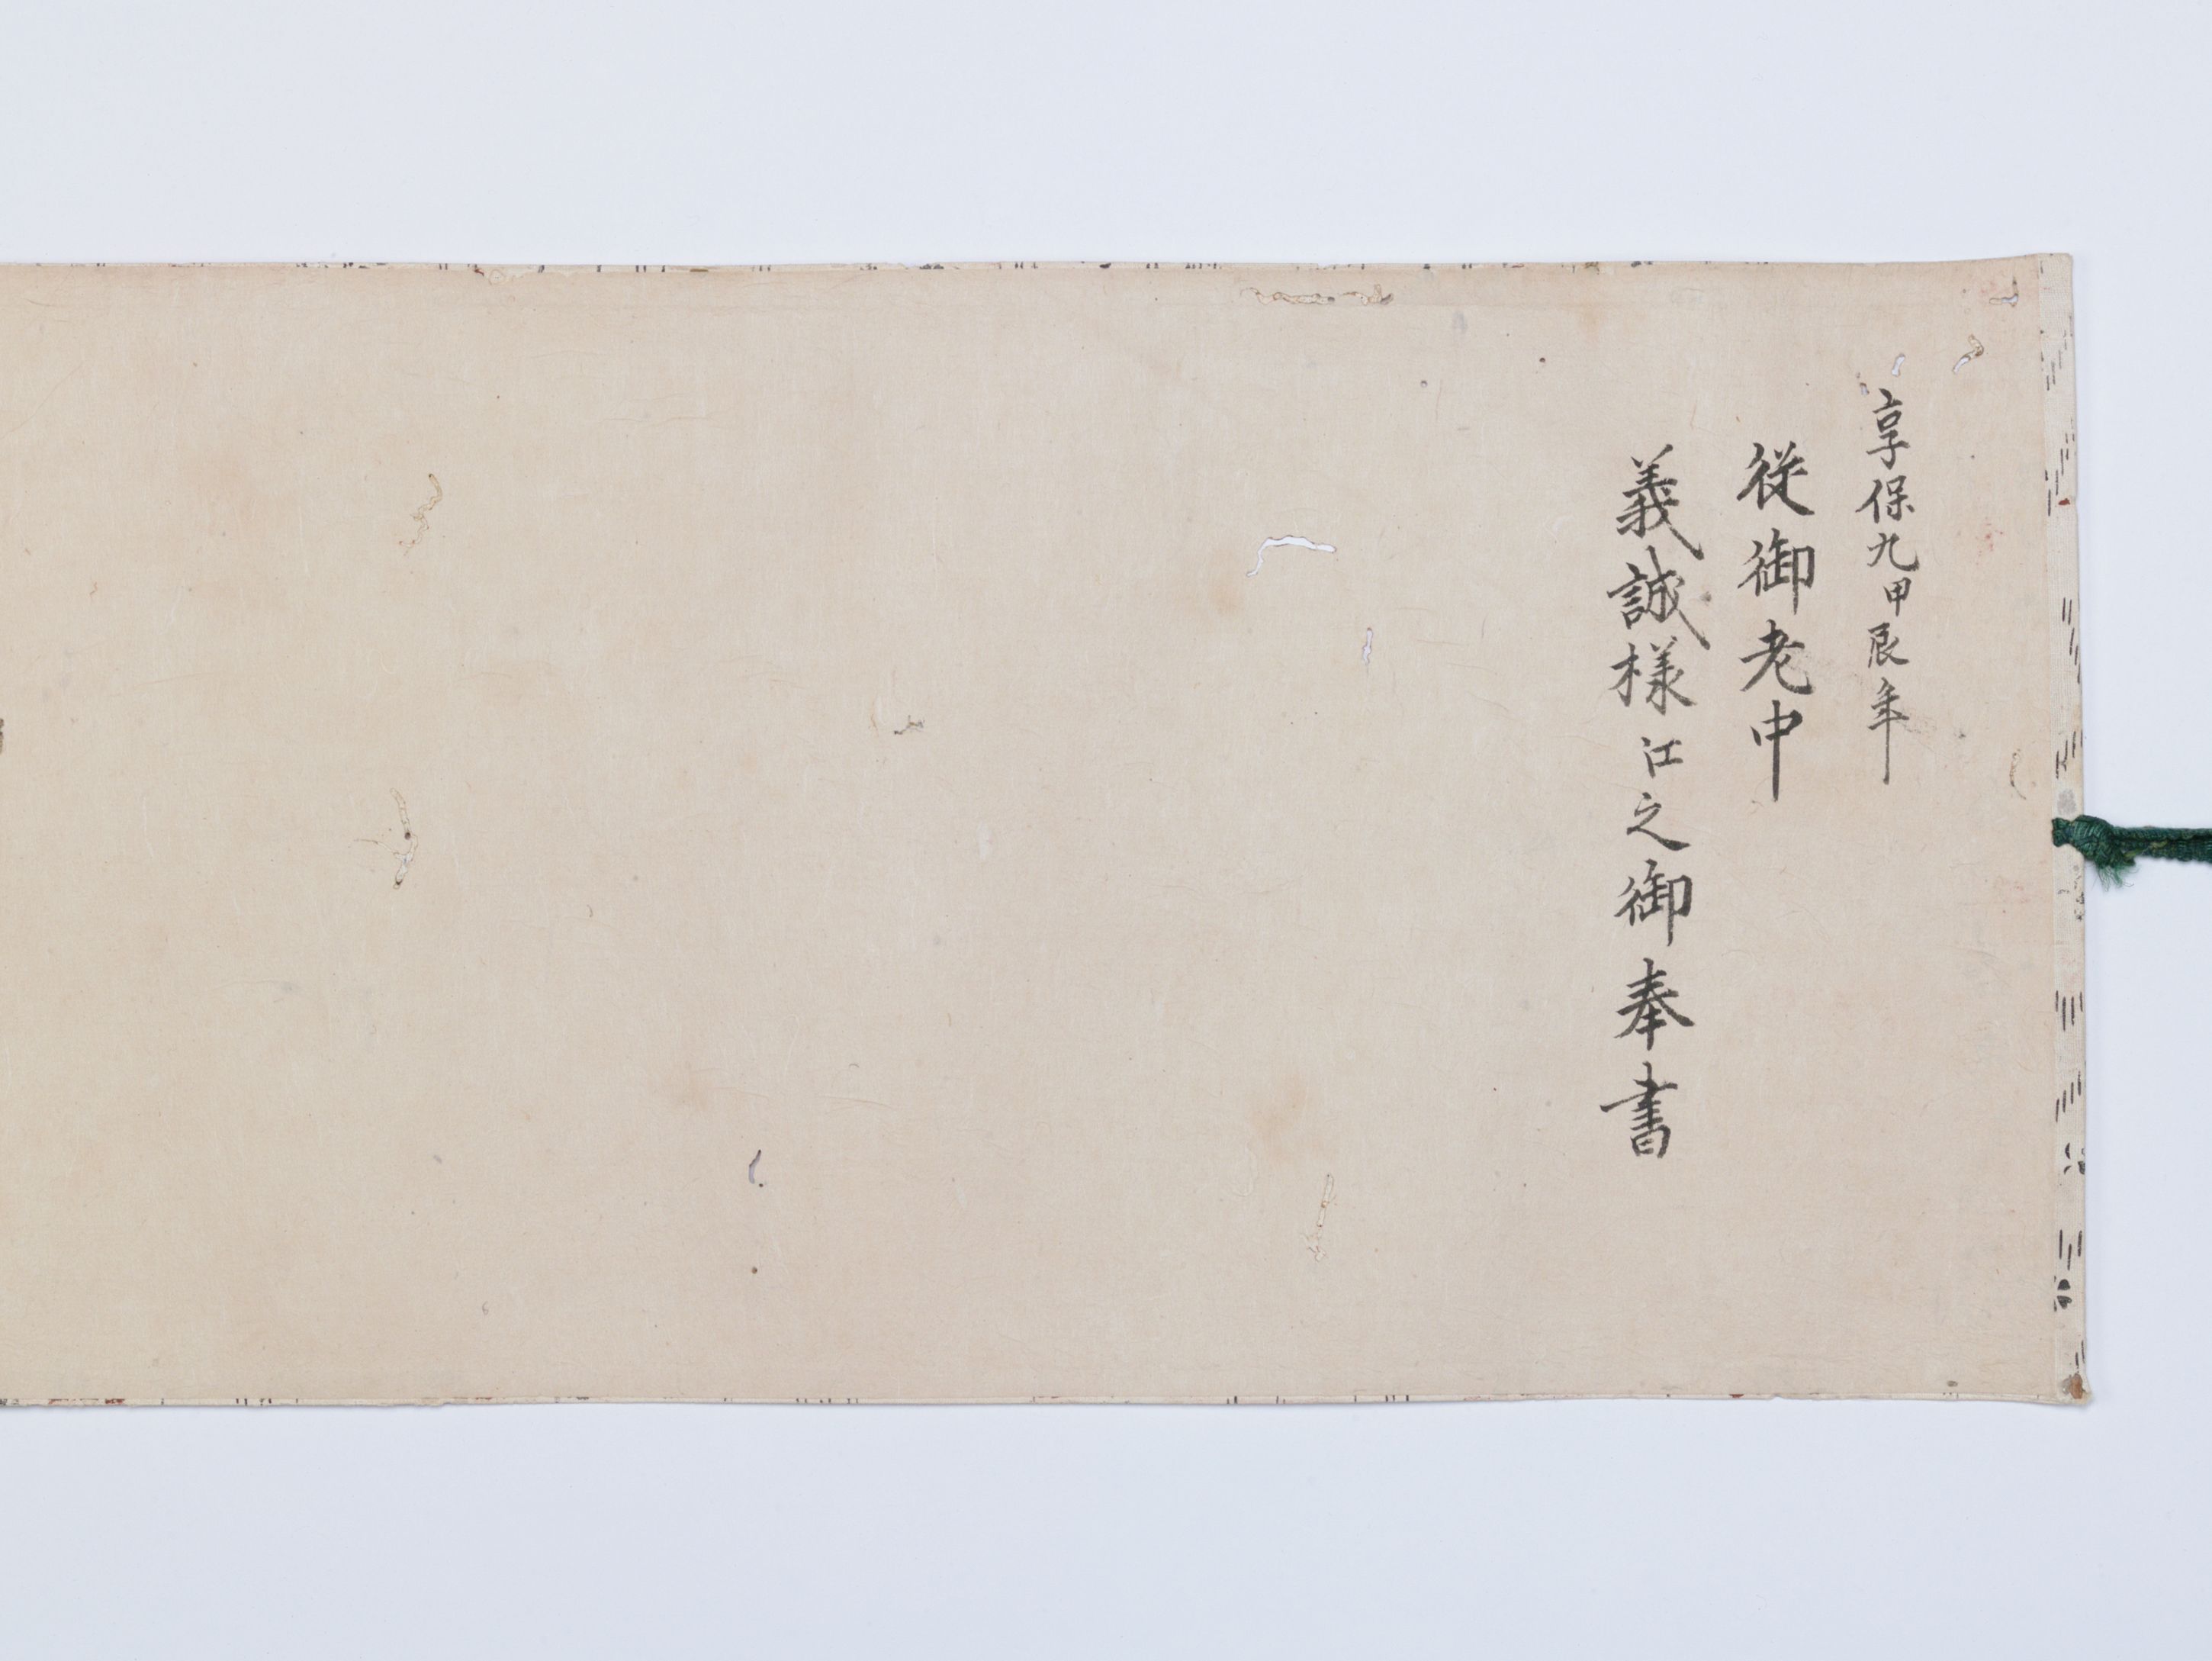 享保九甲辰年
従御老中
義誠様江之御奉書